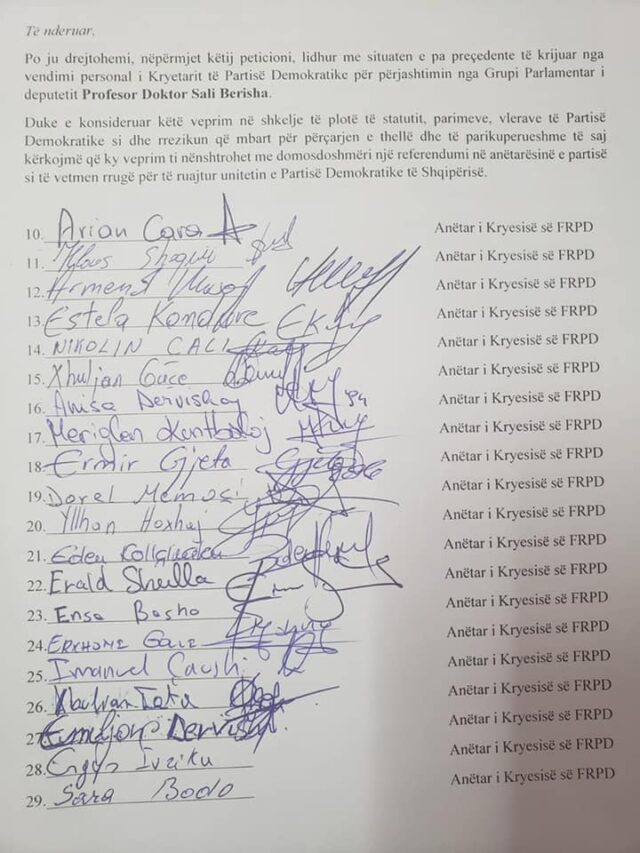 Të nderuar,
Po ju drejtohemi, nëpërmjet këtij peticioni, lidhur me situaten e pa preçedente të krijuar nga
vendimi personal i Kryetarit të Partisë Demokratike për përjashtimin nga Grupi Parlamentar i
deputetit Profesor Doktor Sali Berisha.
Duke e konsideruar këtë veprim në shkelje të plotë të statutit, parimeve, vlerave të Partisë
Demokratike si dhe rrezikun që mbart për përçarjen e thellë dhe të parikuperueshme të saj
kërkojmë që ky veprim ti nënshtrohet me domosdoshmëri një referendumi në anëtarësinë e partisë
si të vetmen rrugë për të ruajtur unitetin e Partisë Demokratike të Shqipërisë.
10. Arian Cara Anëtar i Kryesisë së FRPD
11. Anëtar i Kryesisë së FRPD
12. Armend Anëtar i Kryesisë së FRPD
13 Estela Anëtar i Kryesisë së FRPD
14. NIKOLIN CALI Anëtar i Kryesisë së FRPD
15. Xhuljan Anëtar i Kryesisë së FRPD
16. Anisa Dervishaj Anëtar i Kryesisë së FRPD
17. Meriglen Anëtar i Kryesisë së FRPD
18. Ermir Gjeta Anëtar i Kryesisë së FRPD
19. Dorel Memoçi Anëtar i Kryesisë së FRPD
20. Yllhan Hoxhaj Anëtar i Kryesisë së FRPD
21. Eden Anëtar i Kryesisë së FRPD
22. Erald Shulla Anëtar i Kryesisë së FRPD
23. Ensa Basho Anëtar i Kryesisë së FRPD
24. Anëtar i Kryesisë së FRPD
25. Imanuel Çaushi Anëtar i Kryesisë së FRPD
26. Anëtar i Kryesisë së FRPD
27 Dervishi Anëtar i Kryesisë së FRPD
28. Engjs Iveiku Anëtar i Kryesisë së FRPD
29. Sara Bodo Anëtar i Kryesisë së FRPD